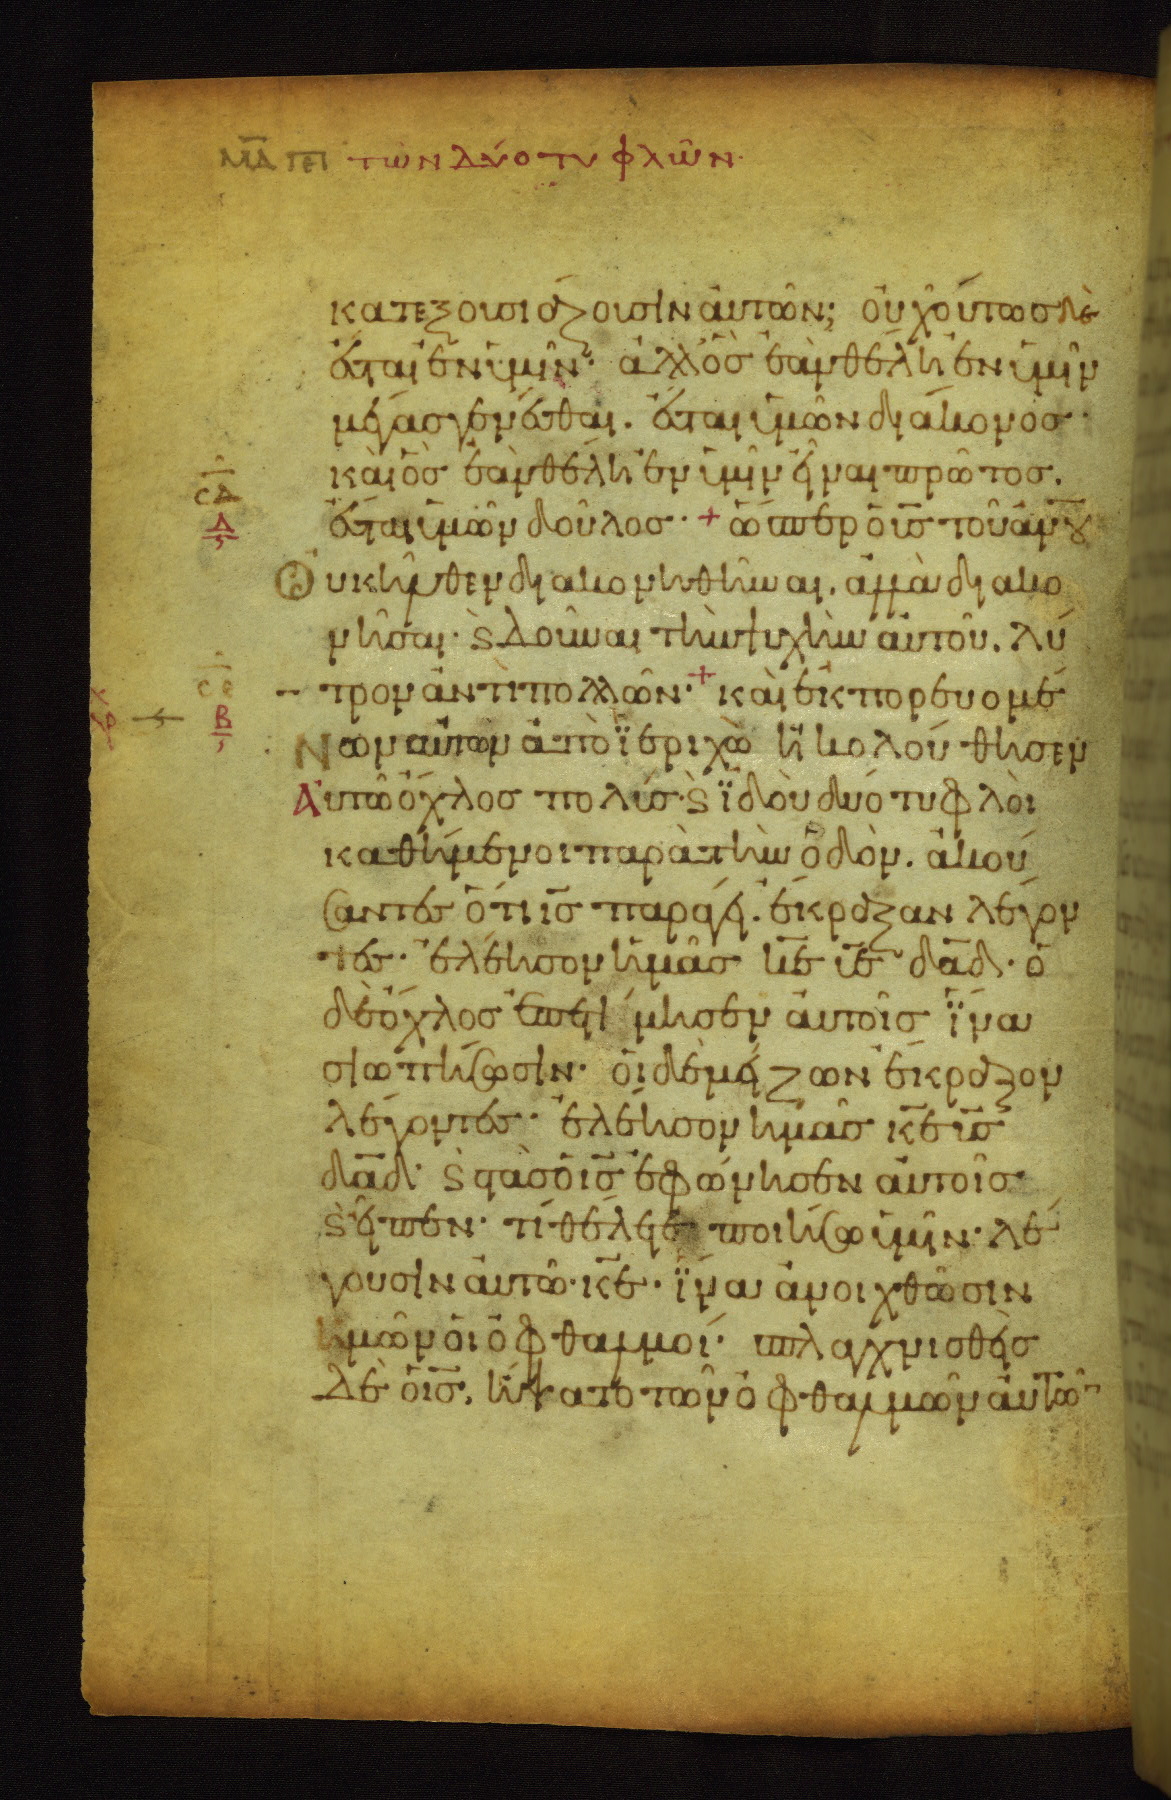 ΜΑ ΠΕΙ των δύο τυφλῶν
κατεξουσιάζουσιν αὐτῶν; οὐχ οὕτως δὲ
ἔσται ἐν ὑμῖν· ἀλλ ὃς ἐὰν θέλη ἐν ὑμῖν
μέγας γενέσθαι. ἔσται ὑμῶν διάκονος·
καὶ ὃς ἐὰν θέλη ἐν ὑμῖν εἶναι πρῶτος.
ϲδ
Δ
ἔσται ὑμῶν δοῦλος· + ὥσπερ ὁ ις τοῦ ανου
Οὐκ ἦλθεν διακονηθῆναι. ἀλλὰ διακο
νῆσαι· ϛ δοῦναι τὴν ψυχὴν αὐτοῦ. λύ
ϲε
Β
τρον ἀντὶ πολλῶν· + καὶ ἐκπορευομέ
Νων αὐτῶν ἀπὸ ϊεριχὼ ἠκολούθησεν
Αὐτῶ ὄχλος πολύς· ϛ ϊδοὺ δύο τυφλοὶ
καθήμενοι παρὰ τὴν ὁδὸν. ἀκού
σαντες ὅτι ις παράγει. ἔκραξαν λέγον
τες· ἐλέησον ἡμᾶς κε ιε δαδ· ὁ
δὲ ὄχλος ἐπετίμησεν αὐτοῖς ϊνα
σιωπήσωσιν· οἱ δὲ μείζων ἔκραζον
λέγοντες· ἐλέησον ἡμᾶς κε ις
δαδ· ϛ στὰς ὁ ις ἐφώνησεν αὐτοῖς·
ϛ εἶπεν· τί θέλετε ποιήσω ὑμῖν· λέ
γουσιν αὐτῶ· κε· ϊνα ἀνοιχθῶσιν
ἡμῶν οἱ ὀφθαλμοί· σπλαγχνισθεὶς
δὲ ὁ ις. ἥψατο τῶν ὀφθαλμῶν αὐτῶν